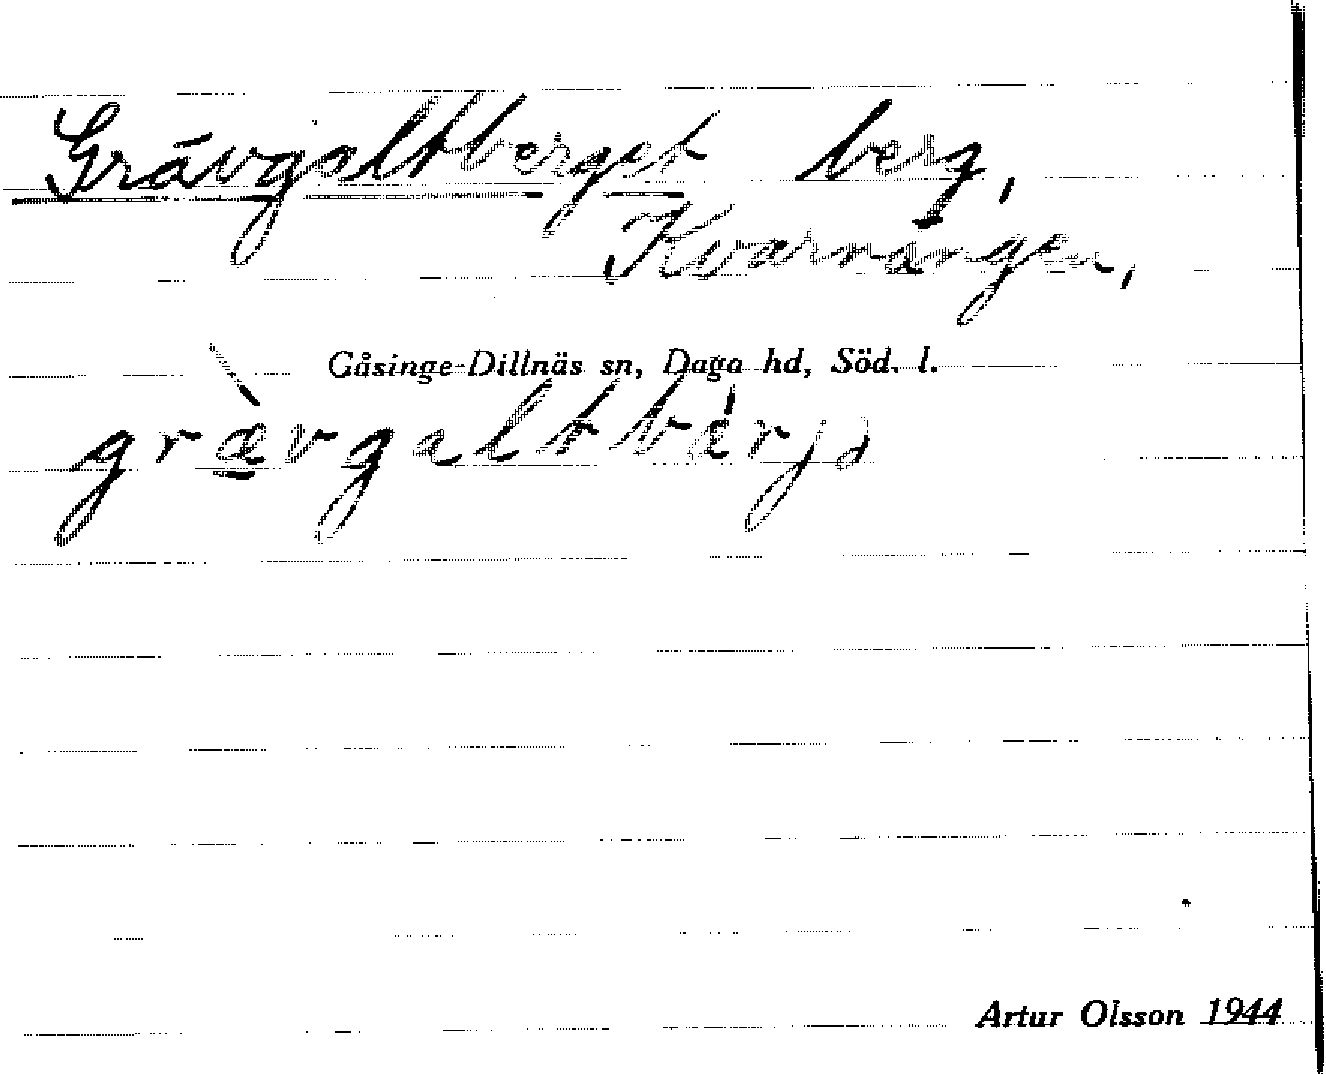 Grävgaltberget berg,
Kvarnängen,
Gåsinge-Dillnäs sn, Daga hd, Söd. l.
græ̀vgaltbǽrjə
Artur Olsson 1944